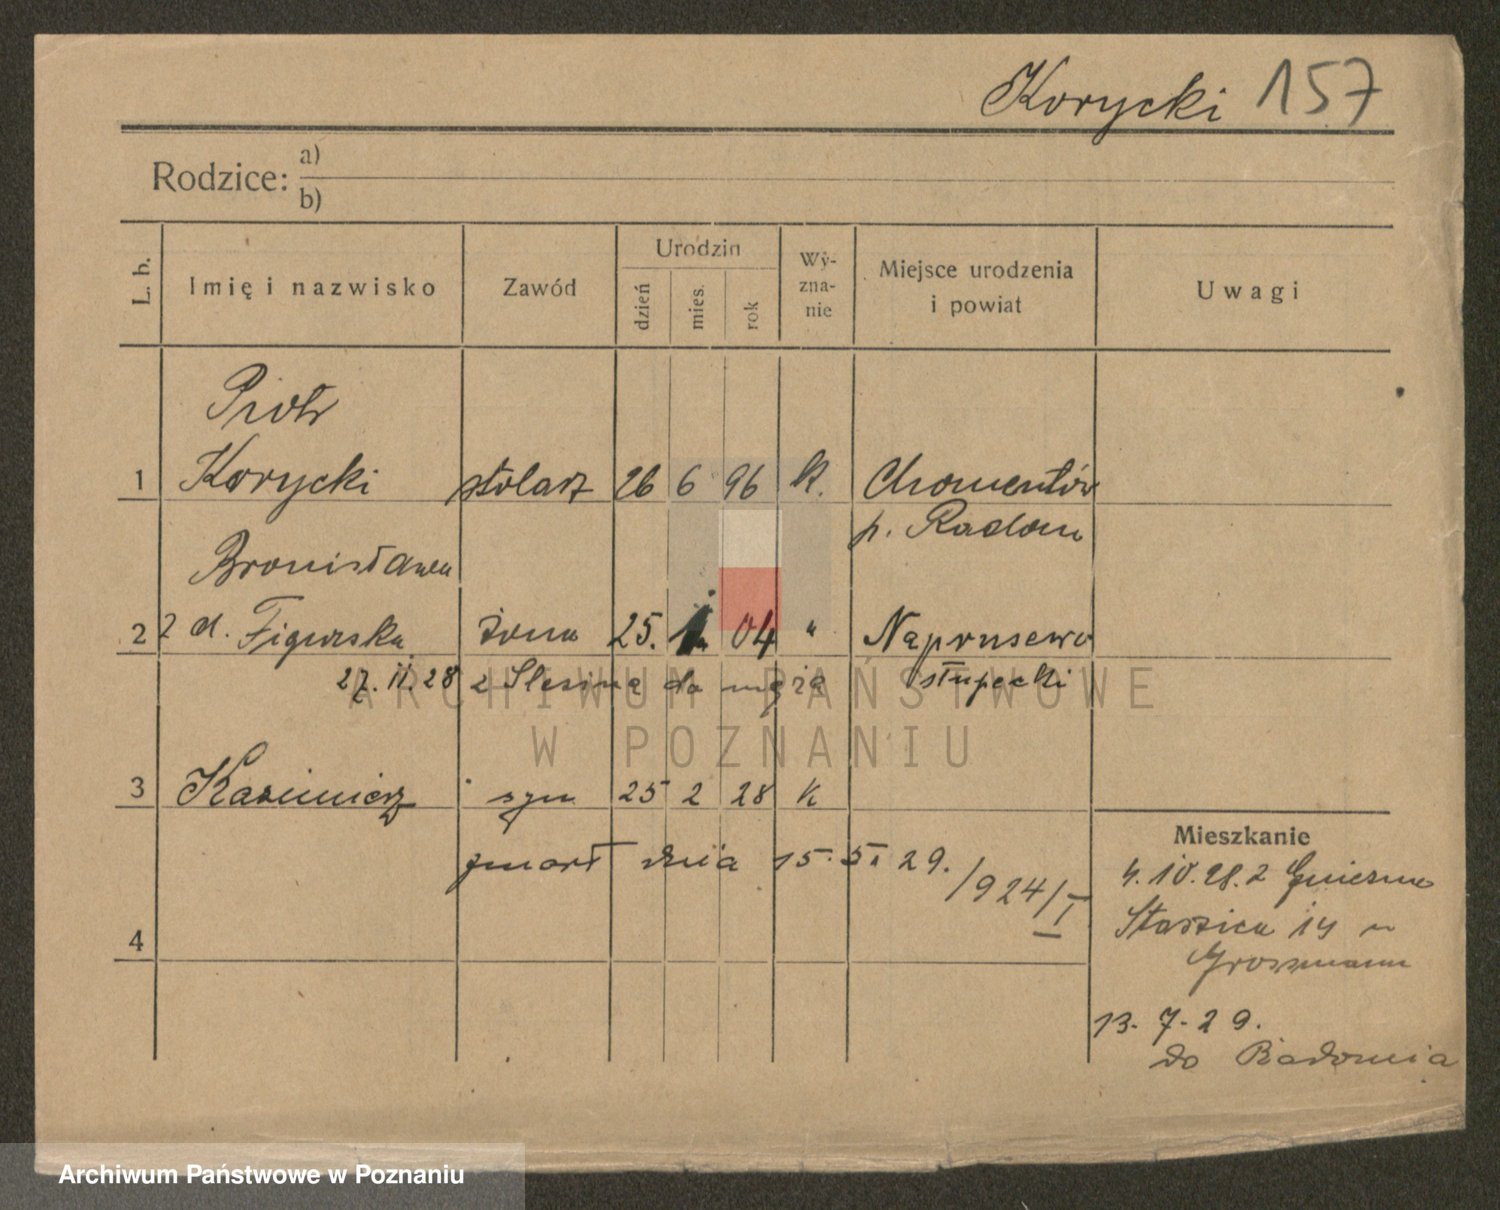 Korycki 157
Rodzice: a)
b)
L. b. Imię i nazwisko Zawód Urodzin dzień mies. rok Wyznanie Miejsce urodzenia i powiat Uwagi
Piotr
1 Korycki stolarz 26 6 96 k. Chomentów
p. Radom
Bronisława
2 z d. Figurska żona 25. 1 04 " Naprusewo
27. II. 28 z Slesina do męża słupecki
3 Kazimierz syn 25 2 28 k
Mieszkanie
zmarł dnia 15. 5. 29. /924/I
4. IV. 28. z Gniezna
Staszica 14
4
Grossmann
13. 7. 29.
do Radomia
ARCHIWUM PAŃSTWOWE
W POZNANIU
Archiwum Państwowe w Poznaniu